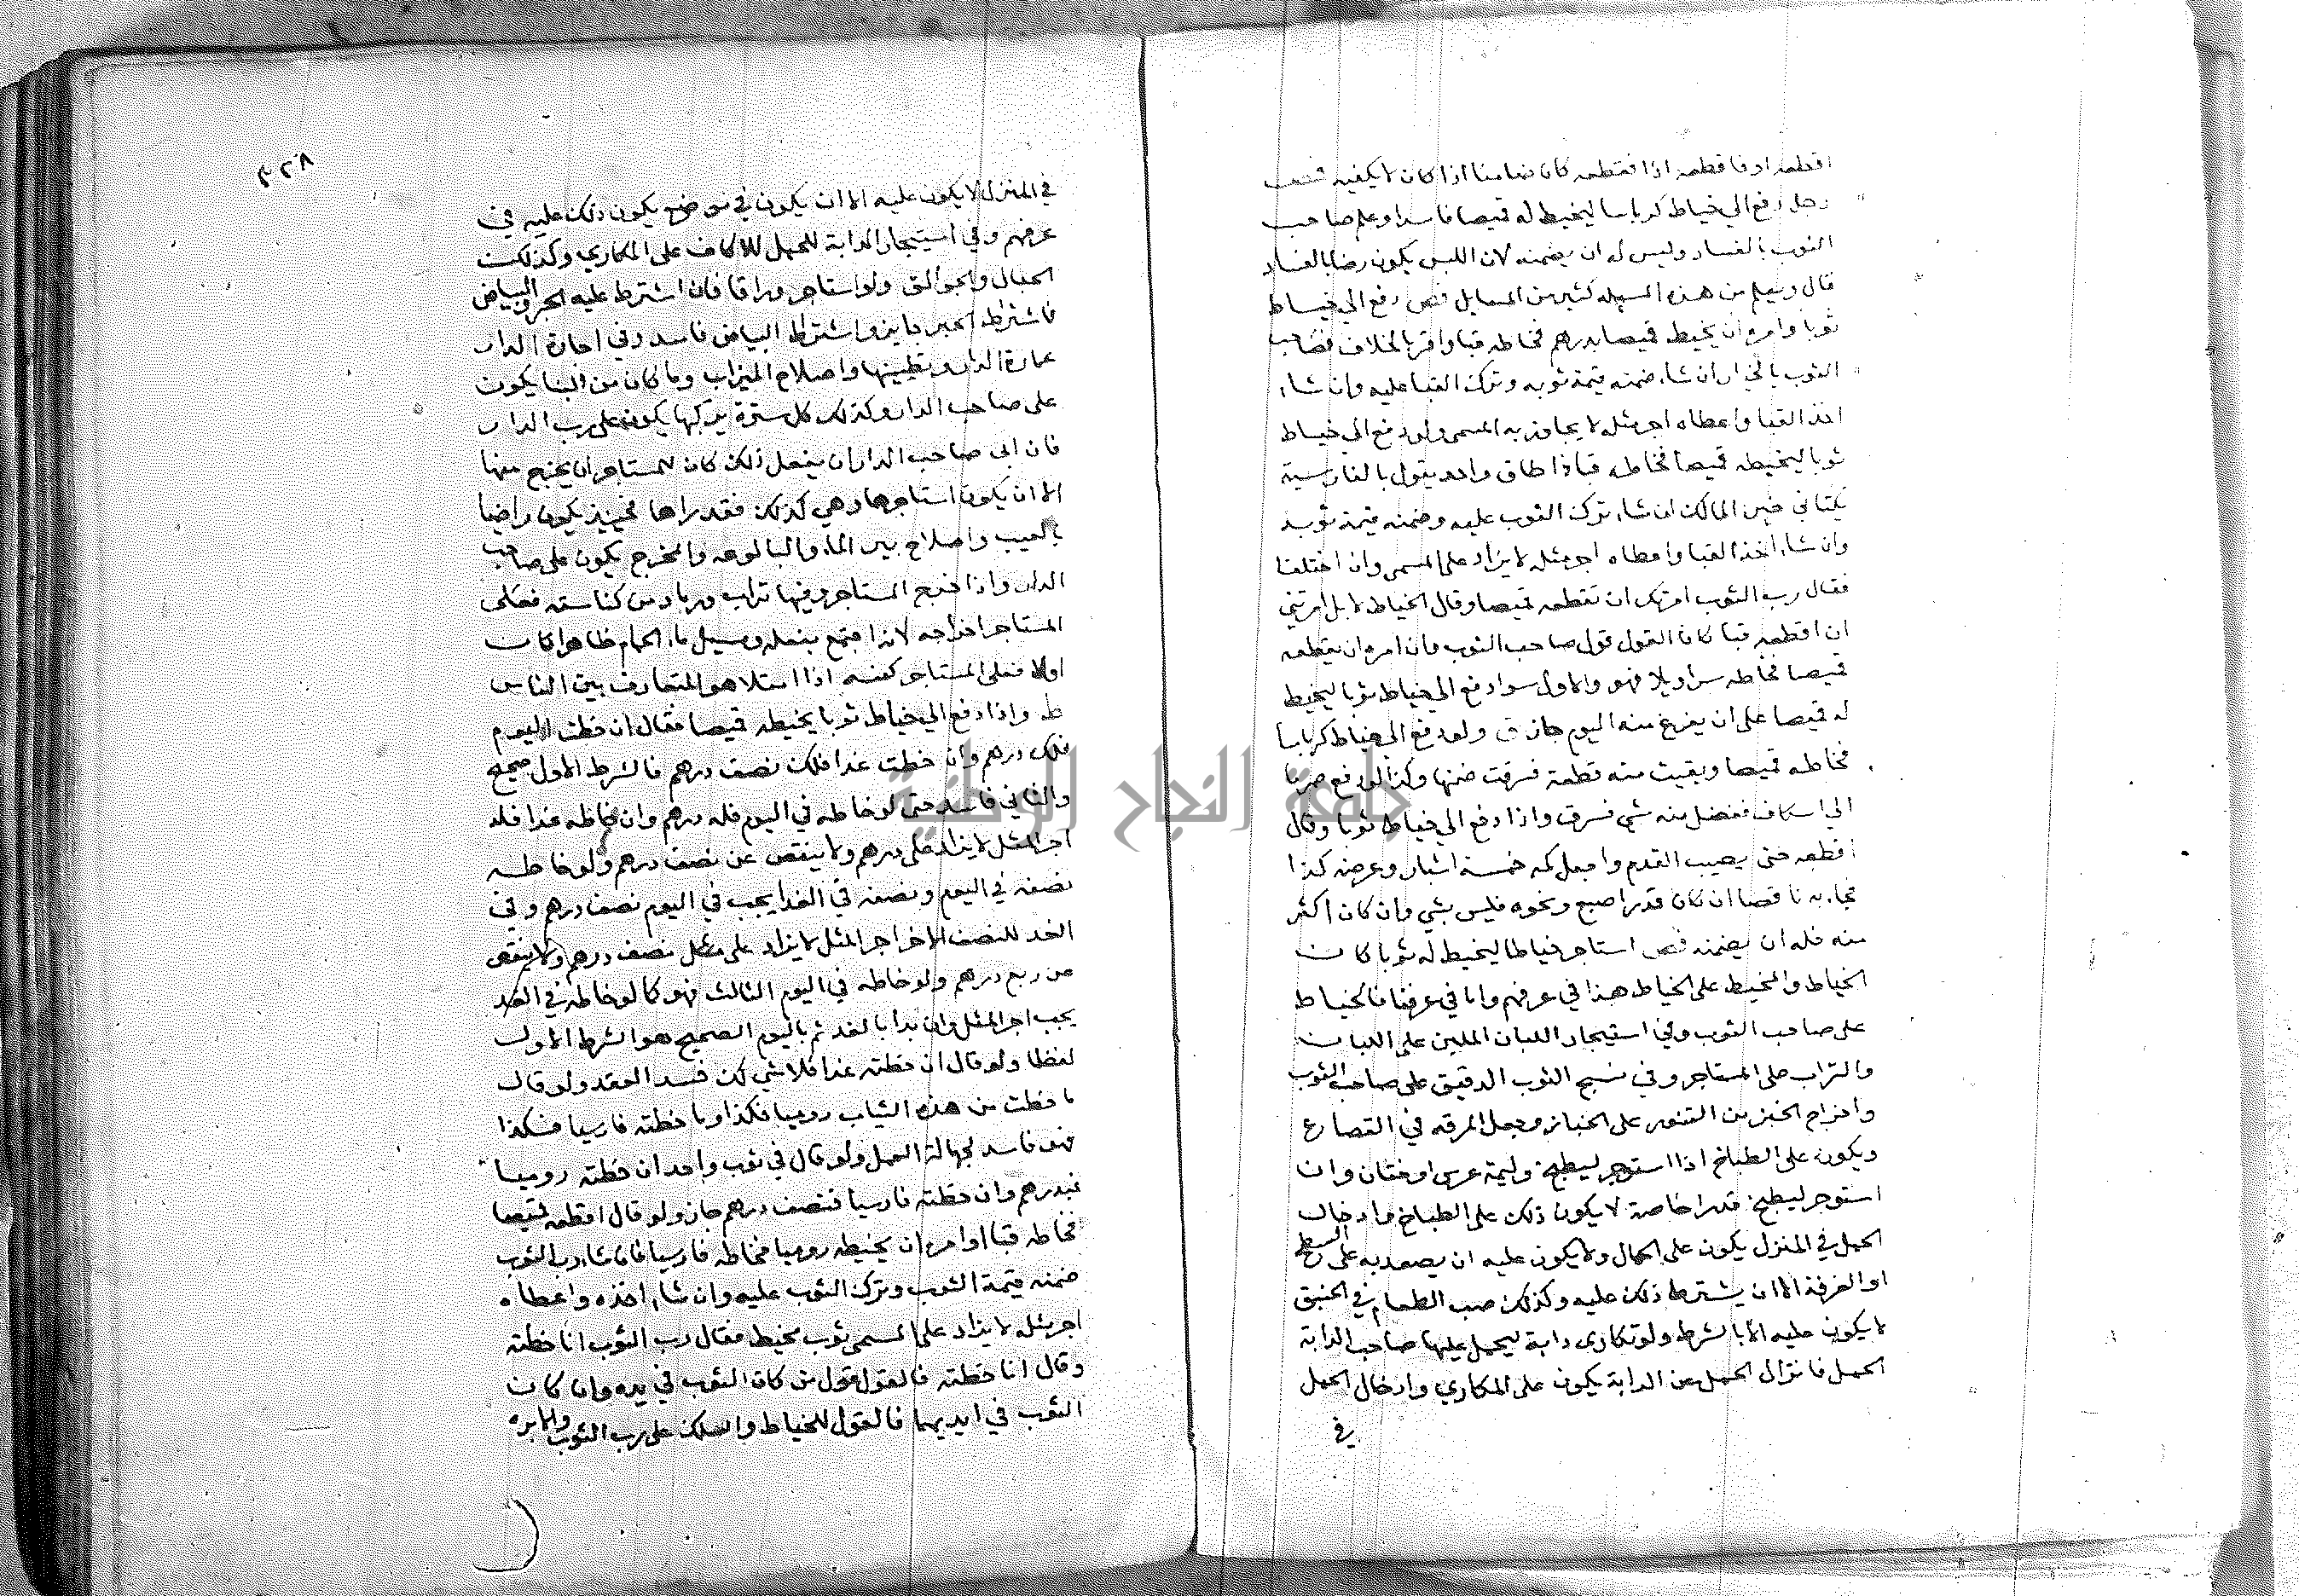 اقطعه او فاقطعه اذا فقطعه كان ضامنا اذا كان لا يكفيه قميصا
رجل دفع الي خياط كرباسا ليخيط له قميصا فاسدا وعلم صاحب
الثوب بالفساد وليس له ان يضمنه لان اللبس يكون رضا بالفساد
قال ويعلم من هذه المسيلة كثير من المسايل دفع الي خياط
ثوبا وامره ان يخيط قميصا بدرهم فخاطه قبا واقر بالخلاف فصاحب
الثوب بالخيار ان شاء ضمنه قيمة ثوبه وترك القبا عليه وان شاء
اخذ القبا واعطاه اجر مثله لا يجاوز به المسمى ولو دفع الي خياط
ثوبا ليخيطه قميصا فخاطه قبا ذا طاق واحد يقول بالفارسية
يكتاني خير المالك ان شاء ترك الثوب عليه وضمنه قيمة ثوبه
وان شاء اخذ القبا واعطاه اجر مثله لا يزاد على المسمى وان اختلفا
فقال رب الثوب امرتك ان تقطعه قميصا وقال الخياط لا بل امرتني
ان اقطعه قبا كان القول قول صاحب الثوب فان امره ان يقطعه
قميصا فخاطه سراويلا فهو والاول سوا دفع الي خياط ثوبا ليخيط
له قميصا على ان يفرغ منه اليوم جاز ق ولو دفع الي خياط كرباسا
فخاطه قميصا وبقيت منه قطعة فسرقت ضمنها وكذا لو دفع صرما
الي اسكاف ففضل منه شي فسرق واذا دفع الي خياط ثوبا وقال
اقطعه حتى يصيب القدم واجعل كمه خمسة اشبار وعرضه كذا
فجاء به ناقصا ان كان قدر اصبع ونحوه فليس بشي وان كان اكثر
منه فله ان يضمنه استاجر خياطا ليخيط له ثوبا كان
الخياط والمخيط على الخياط هذا في عرفهم واما في عرفنا فالخياط
على صاحب الثوب وفي استيجار اللبان الملبن على اللبان
والتراب على المستاجر وفي نسج الثوب الدقيق على صاحب الثوب
واخراج الخبز من التنور على الخباز وجعل المرقة في القصاع
ويكون على الطباخ اذا استوجر ليطبخ وليمة عرس او ختان وان
استوجر ليطبخ قدرا خاصة لا يكون ذلك على الطباخ وادخال
الحمل في المنزل يكون على الحمال ولا يكون عليه ان يصعد به على السطح
او الغرفة الا ان يشترط ذلك عليه وكذلك صب الطعام في الخنبق
لا يكون عليه الا بالشرط ولو تكارى دابة ليحمل عليها صاحب الدابة
الحمل فانزال الحمل عن الدابة يكون على المكاري وادخال الحمل
في
٣٢٨
في المنزل لا يكون عليه الا ان يكون في موضع يكون ذلك عليه في
عرفهم وفي استيجار الدابة للحمل للاكاف على المكاري وكذلك
الحبال والجوالق ولو استاجر وراقا فان اشترط عليه الحبر والبياض
فاشتراط الحبر جايز واشتراط البياض فاسد وفي اجارة الدار
عمارة الدار وتطيينها واصلاح الميزاب وما كان من البنا يكون
على صاحب الدار وكذلك كل سترة يتركها يكون على رب الدار
فان ابى صاحب الدار ان يفعل ذلك كان للمستاجر ان يخرج منها
الا ان يكون استاجرها وهي كذلك فقد راها فحينيذ يكون راضيا
بالعيب واصلاح بير الماء والبالوعه والمخرج يكون على صاحب
الدار واذا خرج المستاجر وفيها تراب ورماد من كناسته فعلى
المستاجر اخراجه لانه اجتمع بفعله ومسيل ماء الحمام ظاهرا كان
اولا فعلى المستاجر كنسه اذا امتلا هو المتعارف بين الناس
ط واذا دفع الي خياط ثوبا يخيطه قميصا فقال ان خطت اليوم
فلك درهم وان خطت غدا فلك نصف درهم فالشرط الاول صحيح
والثاني فاسد حتى لو خاطه في اليوم فله درهم وان خاطه غدا فله
اجر المثل لا يزاد على درهم ولا ينقص عن نصف درهم ولو خاط
نصفه في اليوم ونصفه في الغد يجب في اليوم نصف درهم وفي
الغد للنصف الاخر اجر المثل لا يزاد على نصف درهم ولا ينقص
من ربع درهم ولو خاطه في اليوم الثالث فهو كما لو خاطه في الغد
يجب اجر المثل وان بدا بالغد ثم باليوم الصحيح هو الشرط الاول
لفظا ولو قال ان خطته غدا فلا شي لك فسد العقد ولو قال
ما خطت من هذه الثياب روميا فكذا وما خطته فارسيا فكذا
فهو فاسد لجهالة العمل ولو قال في ثوب واحد ان خطته روميا
فبدرهم وان خطته فارسيا فنصف درهم جاز ولو قال اقطعه قميصا
فخاطه قبا او امره ان يخيطه روميا فخاطه فارسيا فان شاء رب الثوب
ضمنه قيمة الثوب وترك الثوب عليه وان شاء اخذه واعطاه
اجر مثله لا يزاد على المسمى ثوب مخيط فقال رب الثوب انا خطته
وقال انا خطته فالقول قول من كان الثوب في يده وان كان
الثوب في ايديهما فالقول للخياط والسلك على رب الثوب والابره
جامعة النجاح الوطنية